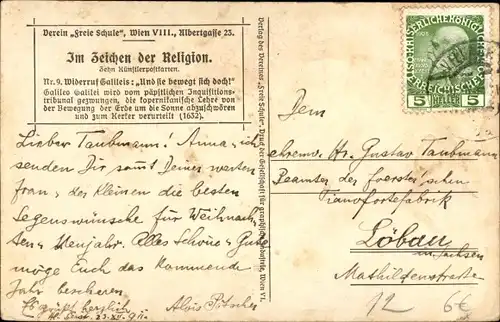 Verein „Freie Schule“, Wien VIII., Albertgasse 23.
Im Zeichen der Religion.
Zehn Künstlerpostkarten.
Nr. 9. Widerruf Galileis: „Und sie bewegt sich doch!“
Galileo Galilei wird vom päpstlichen Inquisitions-
tribunal gezwungen, die kopernikanische Lehre von
der Bewegung der Erde um die Sonne abzuschwören
und zum Kerker verurteilt (1632).
Lieber Taubmann! Anna u. ich
senden Dir samt Deiner werten
Frau u. der Kleinen die besten
Segenswünsche für Weihnach-
ten u. Neujahr. Alles Schöne u. Gute
möge Euch das kommende
Jahr bescheren.
Es grüßt herzlich
Alois
23. XII.
Verlag des Vereines „Freie Schule“. Druck der Gesellschaft für graphische Industrie, Wien VI.
5 HELLER 5
WIEN
Dem
ehrenw. Hr. Gustav Taubmann
Beamter der Foerster'schen
Pianofortefabrik
Löbau
in Sachsen
Mathildenstraße
12
6€